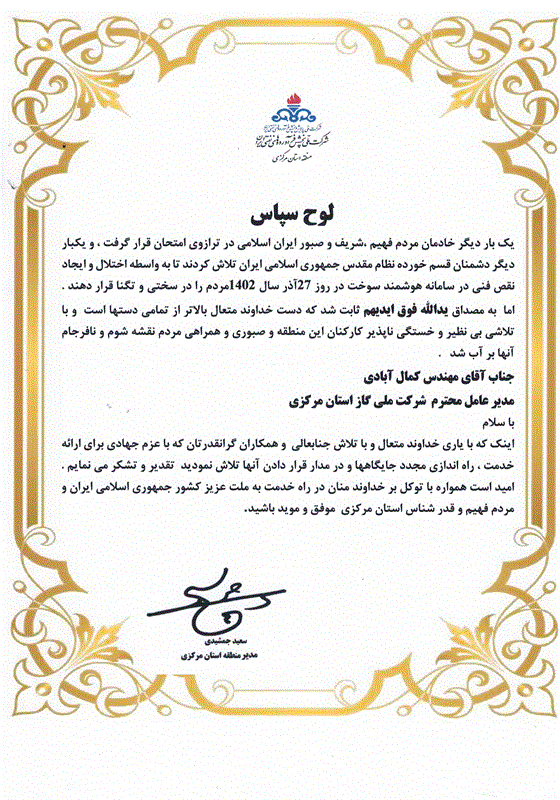 شرکت ملی پخش فرآورده‌های نفتی ایران
منطقه استان مرکزی
لوح سپاس
یک بار دیگر خادمان مردم فهیم ،شریف و صبور ایران اسلامی در ترازوی امتحان قرار گرفت ، و یکبار
دیگر دشمنان قسم خورده نظام مقدس جمهوری اسلامی ایران تلاش کردند تا به واسطه اختلال و ایجاد
نقص فنی در سامانه هوشمند سوخت در روز 27آذر سال 1402مردم را در سختی و تگنا قرار دهند .
اما به مصداق یدالله فوق ایدیهم ثابت شد که دست خداوند متعال بالاتر از تمامی دستها است و با
تلاشی بی نظیر و خستگی ناپذیر کارکنان این منطقه و صبوری و همراهی مردم نقشه شوم و نافرجام
آنها بر آب شد .
جناب آقای مهندس کمال آبادی
مدیر عامل محترم شرکت ملی گاز استان مرکزی
با سلام
اینک که با یاری خداوند متعال و با تلاش جنابعالی و همکاران گرانقدرتان که با عزم جهادی برای ارائه
خدمت ، راه اندازی مجدد جایگاهها و در مدار قرار دادن آنها تلاش نمودید تقدیر و تشکر می نمایم .
امید است همواره با توکل بر خداوند منان در راه خدمت به ملت عزیز کشور جمهوری اسلامی ایران و
مردم فهیم و قدر شناس استان مرکزی موفق و موید باشید.
سعید جمشیدی
مدیر منطقه استان مرکزی